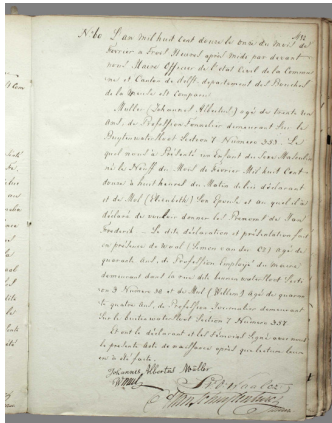 N° 60 L'an mil huit cent douze le onze du mois de
Fevrier à Trois Heures après midi par devant
nous Maire Officier de l'état Civil de la Commu
ne et Canton de Delft, departement des Bouches
de la Meuse est Comparu
Muller (Johannes Albertus) agé de trente
ans, de Profession demeurant Sur le
Buytenwatersloot Section 7 Numéro 353. Le
quel nous a Présenté un Enfant du Sexe Masculin
né le Neuf du Mois de Fevrier Mil huit Cent
douze à huit heures du Matin de lui déclarant
et de Mol (Elisabeth) Son Epouse et au quel il a
déclaré de vouloir donner le Prenom de
Frederik. — La dite déclaration et présentation fait
en présence de Waal (Simon van der) agé de
quarante ans, de Profession Employé
demeurant dans la rue dite binnenwatersloot Secti
on 3 Numéro 30 et de Mol (Willem) agé de quaran
te quatre ans, de Profession Journalier demeurant
Sur le buitenwatersloot Section 7 Numéro 357.
Et ont le déclarant et les témoins Signé avec nous
le présent acte de naissance après que lecture leur
en a été faite.
Johannes Albertus Müller